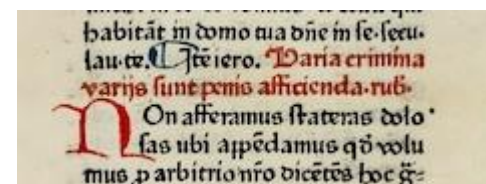 habitāt in domo tua dn̄e in se·secu·
lau·te. Itē iero. Varia crimina
varijs sunt penis afficienda·rub·
NOn afferamus stateras dolo
sas ubi appēdamus qd̄ volu
mus ꝓ arbitrio nr̄o dicētes hoc g̅=